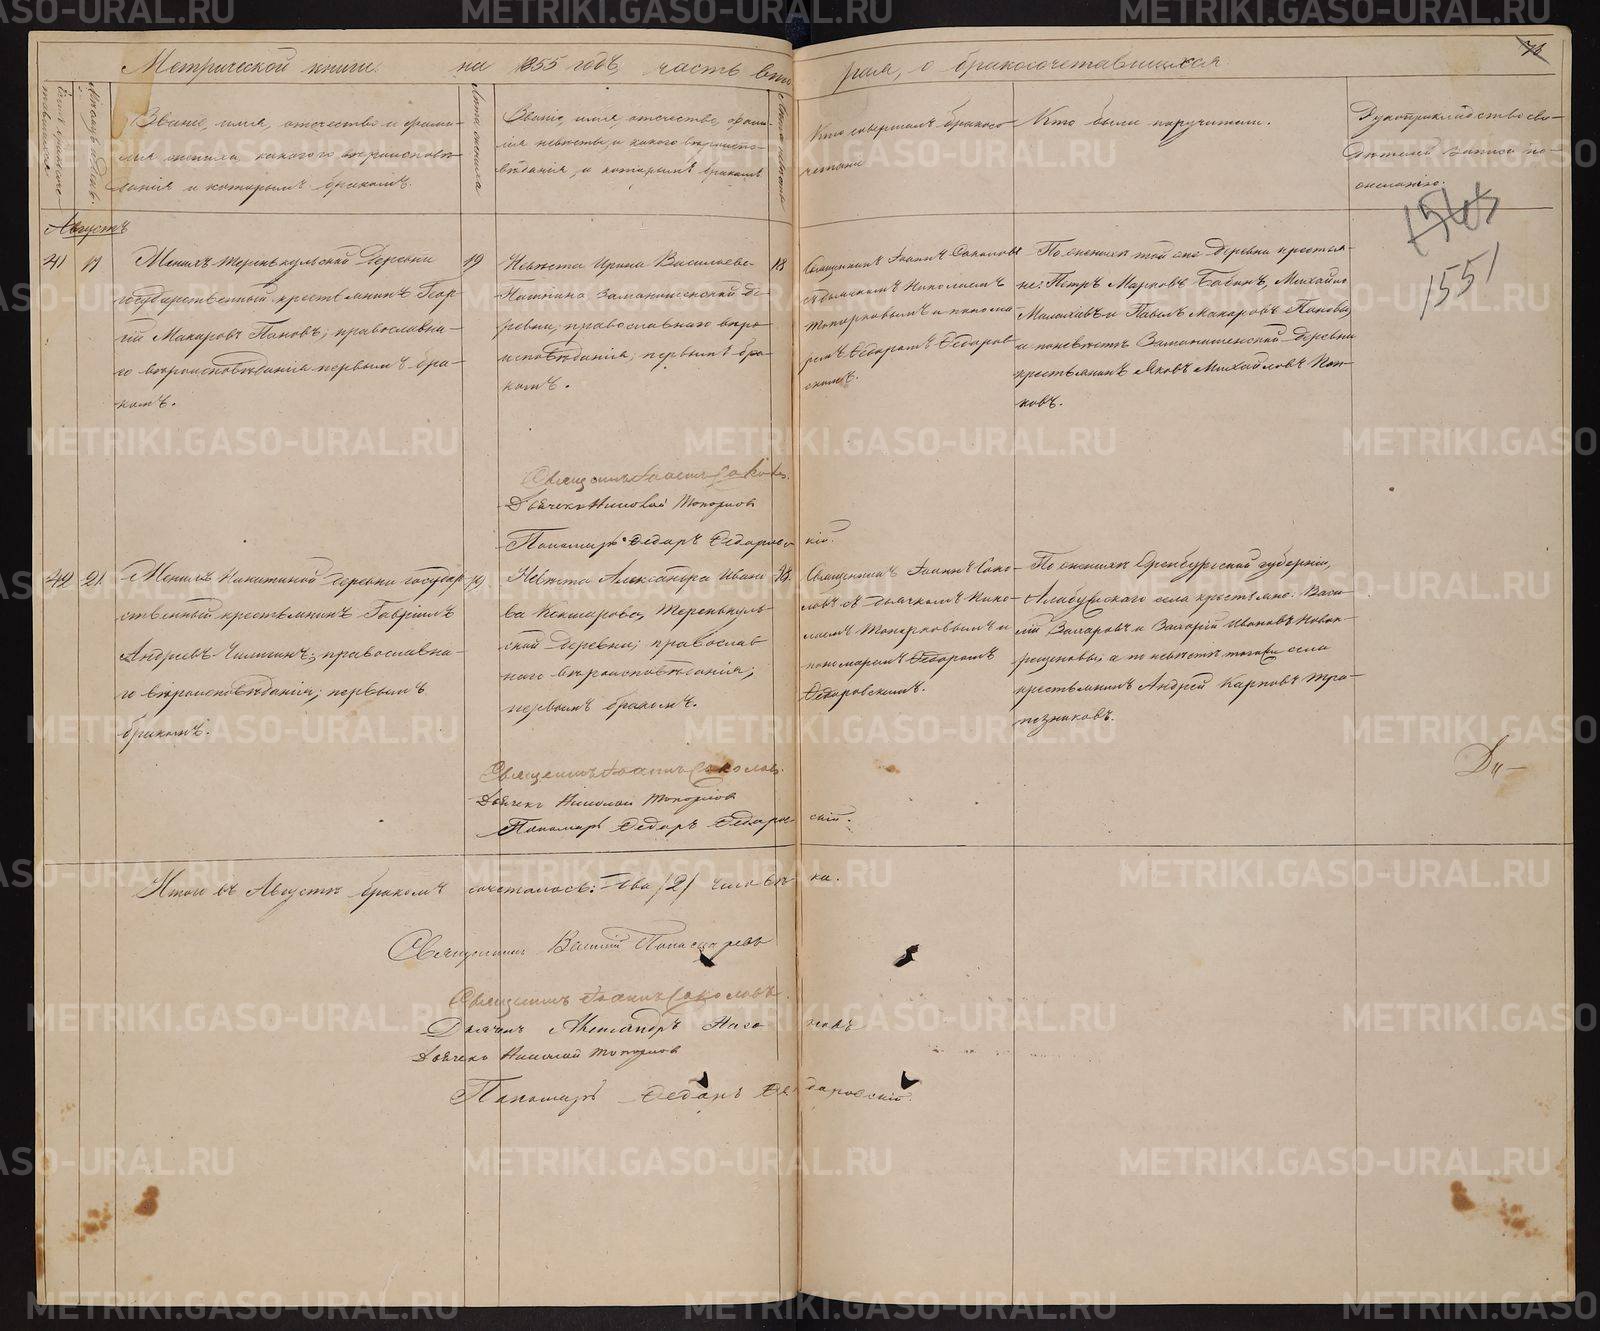 Метрической книги на 1855 годъ часть вто рая, о бракосочетавшихся
71
Званіе, имя, отечество и фами-
лія жениха какого вѣроисповѣ-
данія и которымъ бракомъ.
Лѣта жениха
Званіе, имя, отечество, фами-
лія невѣсты, и какого вѣроиспо-
вѣданія, и которымъ бракомъ
Лѣта невѣсты
Кто совершалъ бракосо-
четаніе
Кто были поручители.
Рукоприкладство сви-
дѣтелей записи по-
желанію.
1551
Августъ
41
17
Женихъ Теренькульской деревни
государственный крестьянинъ Геор-
гій Макаровъ Пановъ; православна-
го вѣроисповѣданія первымъ бра-
комъ.
19
Невѣста Ирина Васильева
Заманиленской де-
ревни, православнаго вѣро-
исповѣданія; первымъ бра-
комъ.
18
Священникъ Іоаннъ Соколовъ
съ дьячкомъ Николаемъ
Топорковымъ и понома-
ремъ Ѳедоромъ Ѳедоров-
скимъ.
По женихѣ той же деревни крестья-
не: Петръ Марковъ Бабинъ, Михайло
и Павелъ Макаровъ Пановы,
а по невѣстѣ Заманиленской деревни
крестьянинъ Яковъ Михайловъ Поп-
ковъ.
Священникъ Іоаннъ Соколовъ.
Дьячекъ Николай Топорковъ
Пономарь Ѳедоръ Ѳедоровс кій.
42
21.
Женихъ Никитиной деревни государ-
ственный крестьянинъ Гавріилъ
Андреевъ Чиличинъ; православна-
го вѣроисповѣданія; первымъ
бракомъ.
19
Невѣста Александра Ивано-
ва Кокшарова, Теренькуль-
ской деревни; православ-
наго вѣроисповѣданія;
первымъ бракомъ.
18.
Священникъ Іоаннъ Соко-
ловъ съ дьячкомъ Нико-
лаемъ Топорковымъ и
пономаремъ Ѳедоромъ
Ѳедоровскимъ.
По женихѣ Оренбургской губерніи,
Алабугскаго села крестьяне: Васи-
лій Захаровъ и Захарій Ивановъ Новок-
рещеновы; а по невѣстѣ того же села
крестьянинъ Андрей Карповъ Тра-
пезниковъ.
Священникъ Іоаннъ Соколовъ.
Дьячекъ Николай Топорковъ
Пономарь Ѳедоръ Ѳедоров скій.
Ди-
Итого въ Августѣ бракомъ сочеталось: Два /2/ человѣ ка.
Священникъ Василій
Священникъ Іоаннъ Соколовъ.
Діаконъ Александръ новъ
Дьячекъ Николай Топорковъ
Пономарь Ѳедоръ Ѳедоровскій.
METRIKI.GASO-URAL.RU